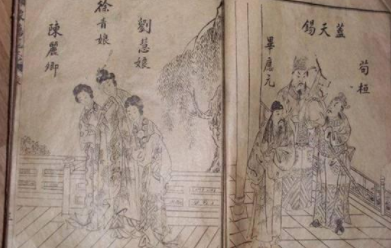 苟桓
蓋天錫
畢應元
劉慧娘
徐青娘
陳麗卿